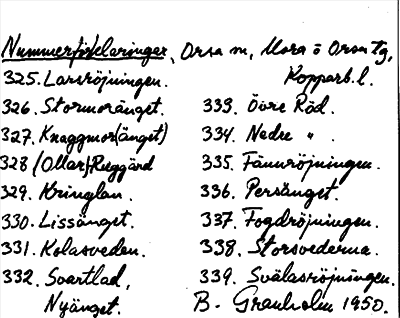 Nummerförklaringar, Orsa sn, Mora o Orsa tg,
Kopparb. l.
325. Larsröjningen.
326. Stormoränget.
327. Knaggmor(änget)
328 (Ollar)Ruggård
329. Kringlan.
330. Lissänget.
331. Kolasveden.
332. Svartlad,
Nyänget.
333. Övre Röd.
334. Nedre " .
335. Fännröjningen.
336. Persänget.
337. Fogdröjningen.
338. Storsvederna.
339. Svälasröjningen.
B. Granholm 1950.